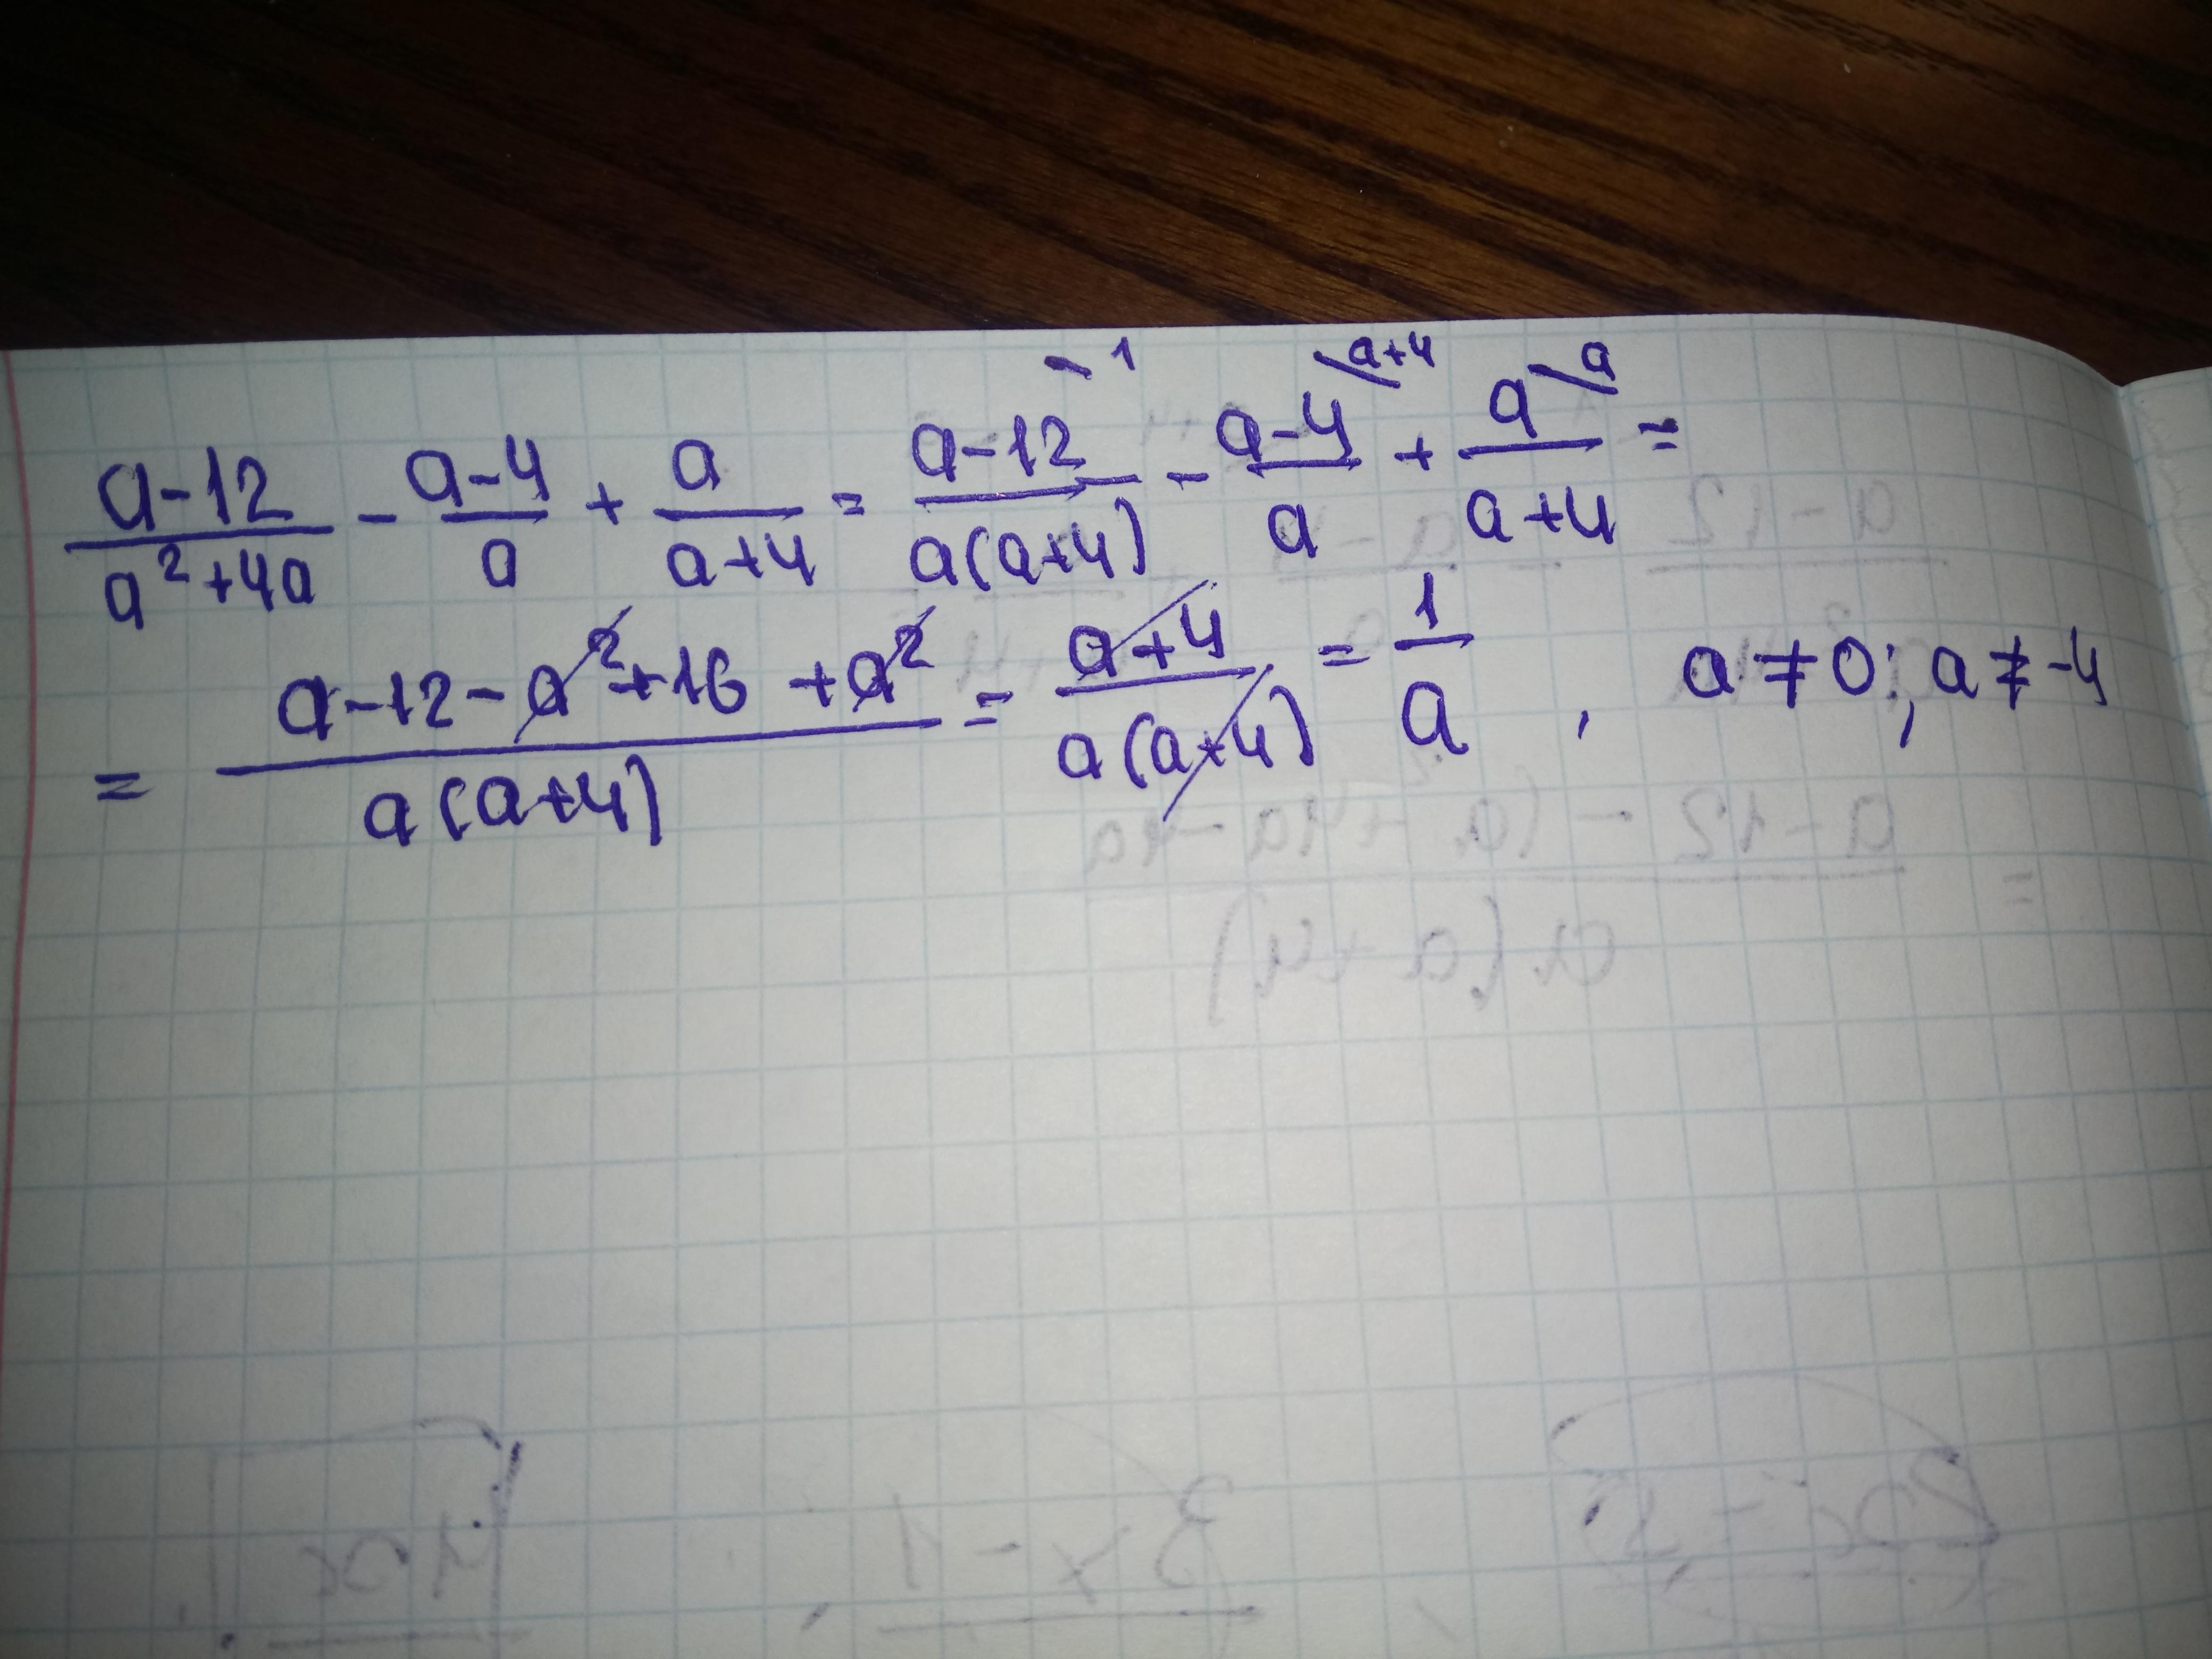 (a-12)/(a²+4a) - (a-4)/a + a/(a+4) = (a-12)/(a(a+4)) \1 - (a-4)/a \a+4 + a/(a+4) \a =
= (a-12-a²+16+a²)/(a(a+4)) = (a+4)/(a(a+4)) = 1/a , a≠0; a≠-4